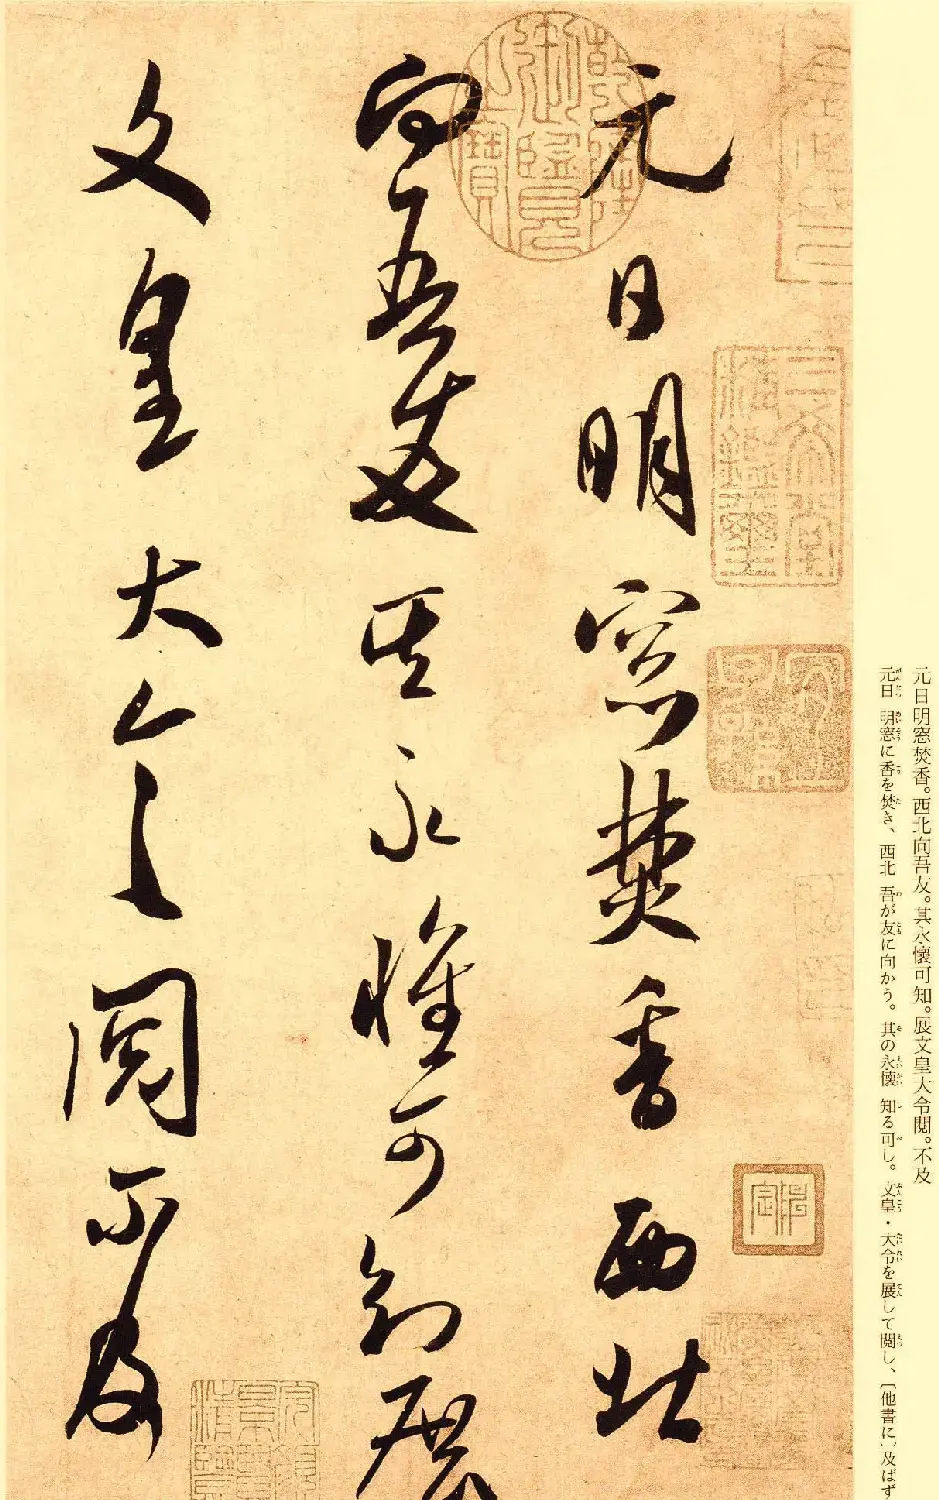 元日明窓焚香。西北向吾友。其永懷可知。展文皇大令閲。不及
元日 明窓に香を焚き、西北 吾が友に向かう。其の永懷 知る可し。文皇・大令を展して閲し、〔他書に〕及ばず
三希堂
精鑑璽
乾隆
御覽
之寶
元日明窓焚香西北
向吾友其永懷可知展
文皇大令閱不及